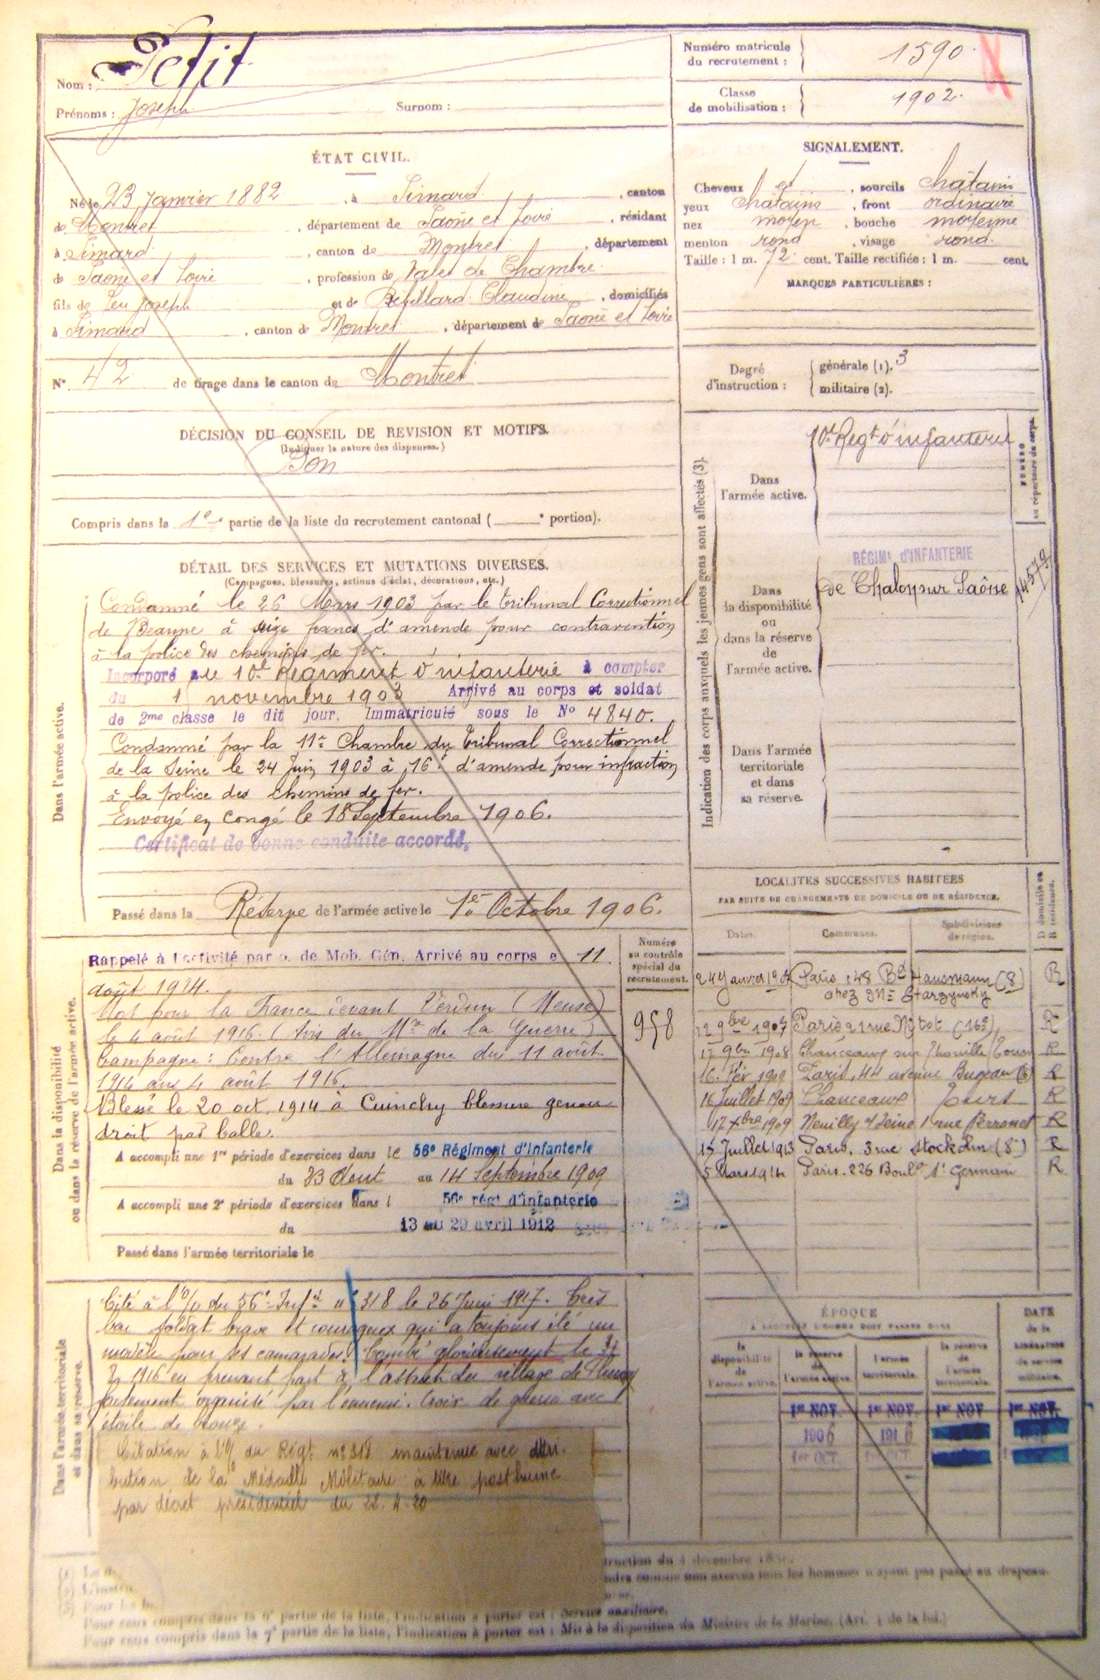 Nom : Petit
Prénoms : Joseph Surnom :
Numéro matricule
du recrutement : 1590
Classe
de mobilisation : 1902.
ÉTAT CIVIL.
Né le 23 Janvier 1882, à Simard, canton
de Montret, département de Saône et Loire, résidant
à Simard, canton de Montret, département
de Saône et Loire, profession de Valet de Chambre
fils de feu Joseph et de Claudine, domiciliés
à Simard, canton de Montret, département de Saône et Loire
N° 42 de tirage dans le canton de Montret
SIGNALEMENT.
Cheveux et, sourcils châtains
yeux châtains, front ordinaire
nez moyen, bouche moyenne
menton rond, visage rond.
Taille : 1 m. 72 cent. Taille rectifiée : 1 m. cent.
MARQUES PARTICULIÈRES :
Degré
d'instruction :
générale (1). 3
militaire (2).
DÉCISION DU CONSEIL DE REVISION ET MOTIFS.
(Indiquer la nature des dispenses.)
Bon
Compris dans la 1e partie de la liste du recrutement cantonal ( e portion).
DÉTAIL DES SERVICES ET MUTATIONS DIVERSES.
(Campagnes, blessures, actions d'éclat, décorations, etc.)
Dans l'armée active.
Condamné le 26 Mars 1903 par le tribunal Correctionnel
de Beaune à seize francs d'amende pour contravention
à la police des chemins de fer.
Incorporé au 10e Régiment d'infanterie à compter
du 1 novembre 1903 Arrivé au corps et soldat
de 2me classe le dit jour. Immatriculé sous le N° 4840.
Condamné par la 11e Chambre du Tribunal Correctionnel
de la Seine le 24 Juin 1903 à 16f d'amende pour infraction
à la police des chemins de fer.
Envoyé en congé le 18 Septembre 1906.
Certificat de bonne conduite accordé.
Passé dans la Réserve de l'armée active le 1er Octobre 1906.
Indication des corps auxquels les jeunes gens sont affectés (3).
Dans
l'armée active.
10e Régt d'infanterie
NUMÉRO
au répertoire du corps.
Dans
la disponibilité
ou
dans la réserve
de
l'armée active.
RÉGIMt d'INFANTERIE
de Chalon sur Saône
Dans l'armée
territoriale
et dans
sa réserve.
Dans la disponibilité
ou dans la réserve de l'armée active.
Numéro
au contrôle
spécial du
recrutement.
958
Rappelé à l'activité par o. de Mob. Gén. Arrivé au corps le 11
août 1914.
Mort pour la France devant Verdun (Meuse)
le 4 août 1916. (Avis du Mre de la Guerre)
Campagne : Contre l'Allemagne du 11 août
1914 au 4 août 1916.
Blessé le 20 oct. 1914 à Cuinchy blessure genou
droit par balle.
A accompli une 1re période d'exercices dans le 56e Régiment d'Infanterie
du 23 Aout au 14 Septembre 1909
A accompli une 2e période d'exercices dans l 56e régt d'infanterie
du 13 au 29 avril 1912
Passé dans l'armée territoriale le
LOCALITÉS SUCCESSIVES HABITÉES
PAR SUITE DE CHANGEMENTS DE DOMICILE OU DE RÉSIDENCE.
Dates. Communes. Subdivisions
de région. D domicile ou
R résidence.
Paris 148 Bd Haussmann (8) R
chez Mr
9bre 1907 Paris 21 rue (16e) R
17 9bre 1908 Chanceaux sur Choisille Tours R
16 fév 1909 Paris, 44 avenue Bugeaud R
16 Juillet 1909 Chanceaux Tours R
17 Xbre 1909 Neuilly s/ Seine 1 rue Perronet R
15 Juillet 1913 Paris, 3 rue Stockolm (8e) R
5 mars 1914 Paris. 226 Bould St Germain R
Dans l'armée territoriale
et dans sa réserve.
Cité à l'o/ du 56e Infie n° 318 le 26 Juin 1917. Très
bon soldat brave et courageux qui a toujours été un
modèle pour ses camarades. Tombé glorieusement le
1916 en prenant part à l'assaut du village de Fleury
fortement organisé par l'ennemi. Croix de guerre avec
étoile de bronze.
Citation à l'O/ du Régt n° 318 maintenue avec attri-
bution de la Médaille Militaire à titre posthume
par décret présidentiel du 22.4.20
ÉPOQUE
A LAQUELLE L'HOMME DOIT PASSER DANS
DATE
de la
LIBÉRATION
du service
militaire.
la
disponibilité
de
l'armée active.
la réserve
de
l'armée active.
l'armée
territoriale.
la réserve
de
l'armée
territoriale.
1er NOV. 1er NOV. 1er NOV 1er NOV.
1906 1916
1er OCT. 1er OCT.
Pour ceux compris dans la 6e partie de la liste, l'indication à porter est : Service auxiliaire.
Pour ceux compris dans la 7e partie de la liste, l'indication à porter est : Mis à la disposition du Ministre de la Marine. (Art. 4 de la loi.)